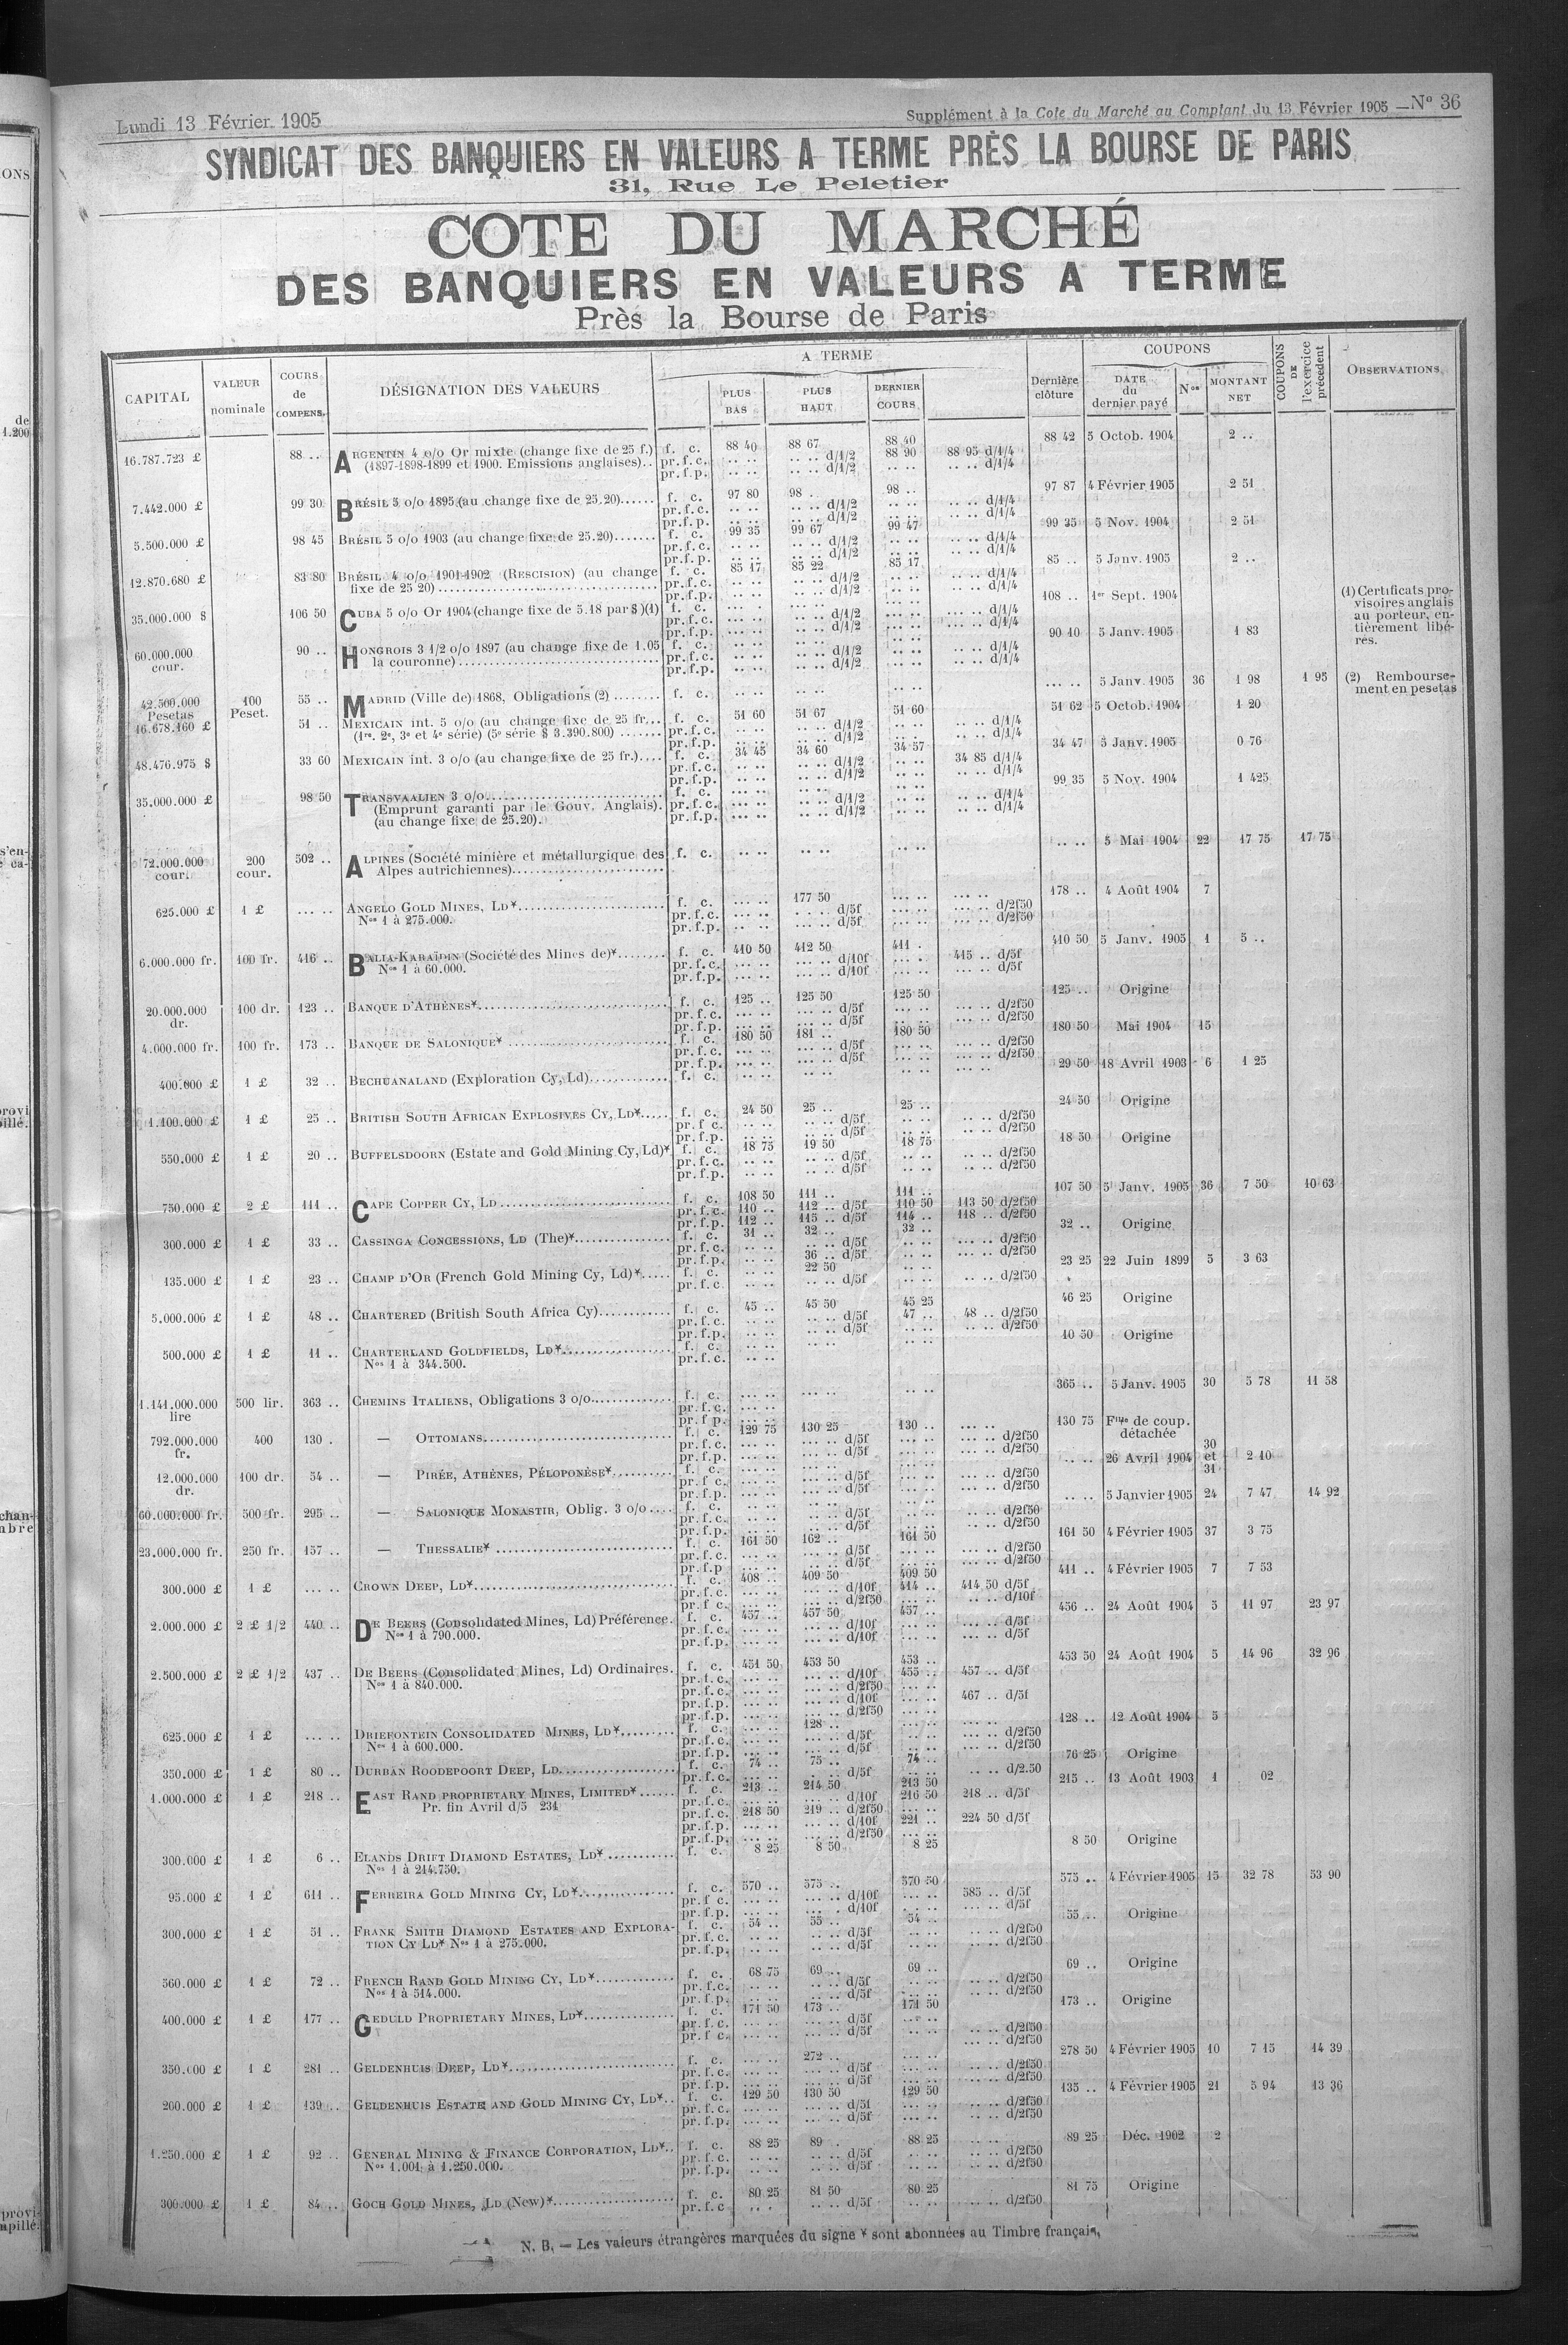 Lundi 13 Février 1905
Supplément à la Cote du Marché au Comptant du 13 Février 1905 — N° 36
SYNDICAT DES BANQUIERS EN VALEURS A TERME PRÈS LA BOURSE DE PARIS
31, Rue Le Peletier
COTE DU MARCHÉ
DES BANQUIERS EN VALEURS A TERME
Près la Bourse de Paris
CAPITAL | VALEUR nominale | COURS de COMPENS. | DÉSIGNATION DES VALEURS | A TERME | PLUS BAS | PLUS HAUT | DERNIER COURS | Dernière clôture | COUPONS | DATE du dernier payé | Nos | MONTANT NET | COUPONS DE l'exercice précédent | OBSERVATIONS
16.787.723 £ 88 .. ARGENTIN 4 o/o Or mixte (change fixe de 25 f.) f. c. 88 40 88 67 88 40 88 42 5 Octob. 1904 2 ..
(1897-1898-1899 et 1900. Emissions anglaises).. pr.f.c. .. .. .. .. d/1/2 88 90 88 95 d/1/4
pr.f.p. .. .. .. .. d/1/2 .. .. .. .. d/1/4
7.442.000 £ 99 30 BRÉSIL 5 o/o 1895 (au change fixe de 25.20)...... f. c. 97 80 98 .. 98 .. 97 87 4 Février 1905 2 51
pr.f.c. .. .. .. .. d/1/2 .. .. .. .. d/1/4
pr.f.p. .. .. .. .. d/1/2 .. .. .. .. d/1/4
5.500.000 £ 98 45 BRÉSIL 5 o/o 1903 (au change fixe de 25.20)....... f. c. 99 35 99 67 99 47 99 35 5 Nov. 1904 2 51
pr.f.c. .. .. .. .. d/1/2 .. .. .. .. d/1/4
pr.f.p. .. .. .. .. d/1/2 .. .. .. .. d/1/4
12.870.680 £ 83 80 BRÉSIL 4 o/o 1901-1902 (RESCISION) (au change f. c. 85 17 85 22 85 17 85 .. 5 Janv. 1905 2 ..
fixe de 25 20) pr.f.c. .. .. .. .. d/1/2 .. .. .. .. d/1/4
pr.f.p. .. .. .. .. d/1/2 .. .. .. .. d/1/4
35.000.000 $ 106 50 CUBA 5 o/o Or 1904 (change fixe de 5.18 par $) (1) f. c. 108 .. 1er Sept. 1904
pr.f.c. ... .. .. .. d/1/2 ... .. ... .. d/1/4
pr.f.p. ... .. .. .. d/1/2 ... .. ... .. d/1/4
(1) Certificats provisoires anglais
au porteur, entièrement libérés.
60.000.000 cour. 90 .. HONGROIS 3 1/2 o/o 1897 (au change fixe de 1.05 f. c. 90 10 5 Janv. 1905 1 83
la couronne) pr.f.c. .. .. .. .. d/1/2 .. .. .. .. d/1/4
pr.f.p. .. .. .. .. d/1/2 .. .. .. .. d/1/4
42.500.000 Pesetas 100 Peset. 55 .. MADRID (Ville de) 1868, Obligations (2) ........ f. c. .. .. .. .. .. .. ... .. 5 Janv. 1905 36 1 98 1 95 (2) Remboursement en pesetas
16.678.160 £ 51 .. MEXICAIN int. 5 o/o (au change fixe de 25 fr... f. c. 51 60 51 67 51 60 51 62 5 Octob. 1904 1 20
(1re, 2e, 3e et 4e série) (5e série $ 3.390.800) ....... pr.f.c. .. .. .. .. d/1/2 .. .. .. .. d/1/4
pr.f.p. .. .. .. .. d/1/2 .. .. .. .. d/1/4
48.476.975 $ 33 60 MEXICAIN int. 3 o/o (au change fixe de 25 fr.).... f. c. 34 45 34 60 34 57 34 47 5 Janv. 1905 0 76
pr.f.c. .. .. .. .. d/1/2 .. .. 34 85 d/1/4
pr.f.p. .. .. .. .. d/1/2 .. .. .. .. d/1/4
35.000.000 £ 98 50 TRANSVAALIEN 3 o/o f. c. 99 35 5 Nov. 1904 1 425
(Emprunt garanti par le Gouv. Anglais). pr.f.c. ... .. .. .. d/1/2 .. .. .. .. d/1/4
(au change fixe de 25.20). pr.f.p. ... .. .. .. d/1/2 .. .. .. .. d/1/4
72.000.000 cour. 200 cour. 502 .. ALPINES (Société minière et métallurgique des f. c. .. .. .. .. .. .. .. .. 5 Mai 1904 22 17 75 17 75
Alpes autrichiennes)
625.000 £ 1 £ ... .. ANGELO GOLD MINES, LD* f. c. ... .. 177 50 ... .. 178 .. 4 Août 1904 7
Nos 1 à 275.000. pr.f.c. ... .. .. .. d/5f ... .. ... .. d/2f50
pr.f.p. .. .. ... .. d/5f ... .. ... .. d/2f50
6.000.000 fr. 100 fr. 416 .. BALIA-KARAÏDIN (Société des Mines de)* f. c. 410 50 412 50 411 . 410 50 5 Janv. 1905 1 5 ..
Nos 1 à 60.000. pr.f.c. ... .. ... .. d/10f ... .. 415 .. d/5f
pr.f.p. ... .. ... .. d/10f ... .. ... .. d/5f
20.000.000 dr. 100 dr. 123 .. BANQUE D'ATHÈNES* f. c. 125 .. 125 50 125 50 125 .. Origine
pr.f.c. ... .. ... .. d/5f ... .. ... .. d/2f50
pr.f.p. ... .. ... .. d/5f ... .. ... .. d/2f50
4.000.000 fr. 100 fr. 173 .. BANQUE DE SALONIQUE* f. c. 180 50 181 .. 180 50 180 50 Mai 1904 15
pr.f.c. ... .. ... .. d/5f ... .. ... .. d/2f50
pr.f.p. ... .. ... .. d/5f ... .. ... .. d/2f50
400.000 £ 1 £ 32 .. BECHUANALAND (Exploration Cy, Ld) f. c. .. .. .. .. .. .. 29 50 18 Avril 1903 6 1 25
1.100.000 £ 1 £ 25 .. BRITISH SOUTH AFRICAN EXPLOSIVES CY, LD* f. c. 24 50 25 .. 25 .. 24 50 Origine
pr.f.c. .. .. .. .. d/5f .. .. d/2f50
pr.f.p. .. .. .. .. d/5f .. .. d/2f50
550.000 £ 1 £ 20 .. BUFFELSDOORN (Estate and Gold Mining Cy, Ld)* f. c. 18 75 19 50 18 75 18 50 Origine
pr.f.c. .. .. .. .. d/5f .. .. .. .. d/2f50
pr.f.p. .. .. .. .. d/5f .. .. .. .. d/2f50
750.000 £ 2 £ 111 .. CAPE COPPER CY, LD f. c. 108 50 111 .. 111 .. 107 50 5 Janv. 1905 36 7 50 10 63
pr.f.c. 110 .. 112 .. d/5f 110 50 113 50 d/2f50
pr.f.p. 112 .. 115 .. d/5f 114 .. 118 .. d/2f50
300.000 £ 1 £ 33 .. CASSINGA CONCESSIONS, LD (The)* f. c. 31 .. 32 .. 32 .. 32 .. Origine
pr.f.c. .. .. .. .. d/5f .. .. .. .. d/2f50
pr.f.p. .. .. 36 .. d/5f .. .. .. .. d/2f50
135.000 £ 1 £ 23 .. CHAMP D'OR (French Gold Mining Cy, Ld)* f. c. .. .. 22 50 .. .. 23 25 22 Juin 1899 5 3 63
pr.f.c. .. .. .. .. d/5f .. .. .. .. d/2f50
5.000.000 £ 1 £ 48 .. CHARTERED (British South Africa Cy) f. c. 45 .. 45 50 45 25 46 25 Origine
pr.f.c. .. .. .. .. d/5f 47 .. 48 .. d/2f50
pr.f.p. .. .. .. .. d/5f .. .. .. .. d/2f50
500.000 £ 1 £ 11 .. CHARTERLAND GOLDFIELDS, LD* f. c. .. .. .. .. .. .. 10 50 Origine
Nos 1 à 344.500. pr.f.c. .. ..
1.141.000.000 lire 500 lir. 363 .. CHEMINS ITALIENS, Obligations 3 o/o f. c. ... .. ... .. .. .. 365 .. 5 Janv. 1905 30 5 78 11 58
pr.f.c. ... ..
pr.f.p. ... ..
792.000.000 fr. 400 130 . — OTTOMANS f. c. 129 75 130 25 130 .. ... .. 130 75 Flle de coup. détachée
pr.f.c. ... .. ... .. d/5f ... .. ... .. d/2f50
pr.f.p. ... .. ... .. d/5f ... .. ... .. d/2f50
12.000.000 dr. 100 dr. 54 .. — PIRÉE, ATHÈNES, PÉLOPONÈSE* f. c. .. .. 26 Avril 1904 30 et 31 2 10
pr.f.c. .. .. .. .. d/5f .. .. .. .. d/2f50
pr.f.p. .. .. .. .. d/5f .. .. .. .. d/2f50
60.000.000 fr. 500 fr. 295 .. — SALONIQUE MONASTIR, Oblig. 3 o/o .... f. c. .. .. 5 Janvier 1905 24 7 47 14 92
pr.f.c. .. .. .. .. d/5f .. .. .. .. d/2f50
pr.f.p. .. .. .. .. d/5f .. .. .. .. d/2f50
23.000.000 fr. 250 fr. 157 .. — THESSALIE* f. c. 161 50 162 .. 161 50 161 50 4 Février 1905 37 3 75
pr.f.c. ... .. ... .. d/5f ... .. ... .. d/2f50
pr.f.p. ... .. ... .. d/5f ... .. ... .. d/2f50
300.000 £ 1 £ ... .. CROWN DEEP, LD* f. c. 408 .. 409 50 409 50 411 .. 4 Février 1905 7 7 53
pr.f.c. ... .. ... .. d/10f 414 .. 414 50 d/5f
pr.f.c. ... .. ... .. d/2f50 ... .. ... .. d/10f
2.000.000 £ 2 £ 1/2 440 .. DE BEERS (Consolidated Mines, Ld) Préférence. f. c. 457 .. 457 50 457 .. 456 .. 24 Août 1904 5 11 97 23 97
Nos 1 à 790.000. pr.f.c. ... .. ... .. d/10f ... .. ... .. d/5f
pr.f.p. ... .. ... .. d/10f ... .. ... .. d/5f
2.500.000 £ 2 £ 1/2 437 .. DE BEERS (Consolidated Mines, Ld) Ordinaires. f. c. 451 50 453 50 453 .. 453 50 24 Août 1904 5 14 96 32 96
Nos 1 à 840.000. pr.f.c. ... .. ... .. d/10f 455 .. 457 .. d/5f
pr.f.c. ... .. ... .. d/2f50 ... ..
pr.f.p. ... .. ... .. d/10f ... .. 467 .. d/5f
pr.f.p. ... .. ... .. d/2f50 ... ..
625.000 £ 1 £ ... .. DRIEFONTEIN CONSOLIDATED MINES, LD* f. c. ... .. 128 .. ... .. 128 .. 12 Août 1904 5
Nos 1 à 600.000. pr.f.c. ... .. ... .. d/5f ... .. ... .. d/2f50
pr.f.p. ... .. ... .. d/5f ... .. ... .. d/2f50
350.000 £ 1 £ 80 .. DURBAN ROODEPOORT DEEP, LD f. c. 74 .. 75 .. 74 .. 76 25 Origine
pr.f.c. ... .. .. .. d/5f .. .. .. .. d/2.50
1.000.000 £ 1 £ 218 .. EAST RAND PROPRIETARY MINES, LIMITED* f. c. 213 .. 214 50 213 50 215 .. 13 Août 1903 1 02
Pr. fin Avril d/5 231 pr.f.c. ... .. ... .. d/10f 216 50 218 .. d/5f
pr.f.c. 218 50 219 .. d/2f50 ... ..
pr.f.p. ... .. ... .. d/10f 221 .. 224 50 d/5f
pr.f.p. ... .. ... .. d/2f50 ... ..
300.000 £ 1 £ 6 .. ELANDS DRIFT DIAMOND ESTATES, LD* f. c. 8 25 8 50 8 25 8 50 Origine
Nos 1 à 214.750.
95.000 £ 1 £ 611 .. FERREIRA GOLD MINING CY, LD* f. c. 570 .. 575 .. 570 50 575 .. 4 Février 1905 15 32 78 53 90
pr.f.c. ... .. ... .. d/10f ... .. 585 .. d/5f
pr.f.p. ... .. ... .. d/10f ... .. ... .. d/5f
300.000 £ 1 £ 51 .. FRANK SMITH DIAMOND ESTATES AND EXPLORA- f. c. 54 .. 55 .. 54 .. 55 .. Origine
TION CY LD* Nos 1 à 275.000. pr.f.c. .. .. .. .. d/5f .. .. .. .. d/2f50
pr.f.p. .. .. .. .. d/5f .. .. .. .. d/2f50
560.000 £ 1 £ 72 .. FRENCH RAND GOLD MINING CY, LD* f. c. 68 75 69 .. 69 .. 69 .. Origine
Nos 1 à 514.000. pr.f.c. .. .. .. .. d/5f .. .. .. .. d/2f50
pr.f.p. .. .. .. .. d/5f .. .. .. .. d/2f50
400.000 £ 1 £ 177 .. GEDULD PROPRIETARY MINES, LD* f. c. 171 50 173 .. 171 50 173 .. Origine
pr.f.c. ... .. ... .. d/5f ... .. ... .. d/2f50
pr.f.c. ... .. ... .. d/5f ... .. d/2f50
350.000 £ 1 £ 281 .. GELDENHUIS DEEP, LD* f. c. ... .. 272 .. ... .. 278 50 4 Février 1905 10 7 15 14 39
pr.f.c. ... .. ... .. d/5f ... .. ... .. d/2f50
pr.f.p. ... .. ... .. d/5f ... .. ... .. d/2f50
200.000 £ 1 £ 139 .. GELDENHUIS ESTATE AND GOLD MINING CY, LD* f. c. 129 50 130 50 129 50 135 .. 4 Février 1905 21 5 94 13 36
pr.f.c. ... .. ... .. d/5f ... .. ... .. d/2f50
pr.f.p. ... .. ... .. d/5f ... .. ... .. d/2f50
1.250.000 £ 1 £ 92 .. GENERAL MINING & FINANCE CORPORATION, LD* f. c. 88 25 89 . 88 25 .. .. 89 25 Déc. 1902 2
Nos 1.001 à 1.250.000. pr.f.c. .. .. .. .. d/5f .. .. .. .. d/2f50
pr.f.p. .. .. .. .. d/5f .. .. .. .. d/2f50
300.000 £ 1 £ 84 .. GOCH GOLD MINES, LD (New)* f. c. 80 25 81 50 80 25 81 75 Origine
pr.f.c. .. .. .. .. d/5f .. .. .. .. d/2f50
N. B. — Les valeurs étrangères marquées du signe * sont abonnées au Timbre français.